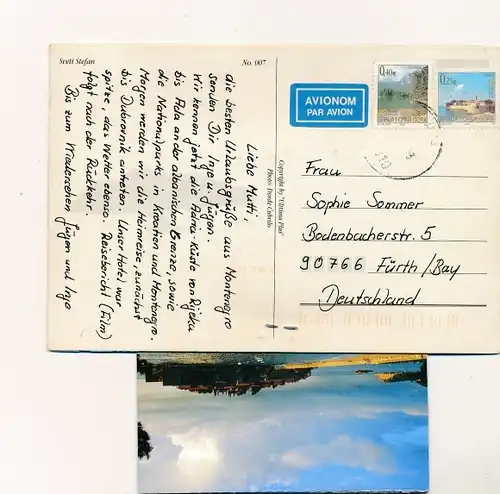 Sveti Stefan
No. 007
Liebe Mutti.
die besten Urlaubsgrüße aus Montenegro
senden Dir Inge u. Jürgen.
Wir kennen jetzt die Adria-Küste von Rijeka
bis Pula an der albanischen Grenze, sowie
die Nationalparks in Kroatien und Montenegro.
Morgen werden wir die Heimreise, zunächst
bis Dubrovnik antreten. Unser Hotel war
spitze, das Wetter ebenso. Reisebericht (Film)
folgt nach der Rückkehr.
Bis zum Wiedersehen Jürgen und Inge
Copyright by "Ultima Plus"
Photo: Đorđe Čubrilo
AVIONOM
PAR AVION
0,40€
0,25€
Frau
Sophie Sommer
Bodenbacherstr. 5
90766 Fürth/Bay
Deutschland